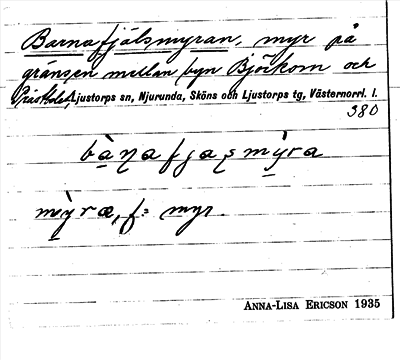 Barnafjälsmyran, myr på
gränsen mellan byn Björkom och
Prästbolet, Ljustorps sn, Njurunda, Sköns och Ljustorps tg, Västernorrl. l.
380
myr.
ANNA-LISA ERICSON 1935